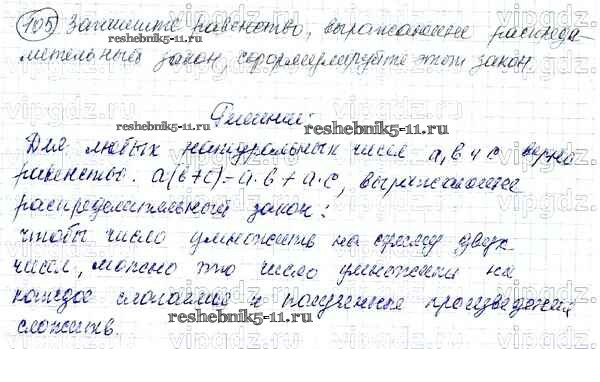 105 Запишите равенство, выражающее распреде-
лительный закон, сформулируйте этот закон.
Решение:
Для любых натуральных чисел a, b и c верно
равенство: a(b+c)=a·b+a·c, выражающее
распределительный закон:
чтобы число умножить на сумму двух
чисел, можно это число умножить на
каждое слагаемое и полученные произведения
сложить.
reshebnik5-11.ru
reshebnik5-11.ru
reshebnik5-11.ru
reshebnik5-11.ru